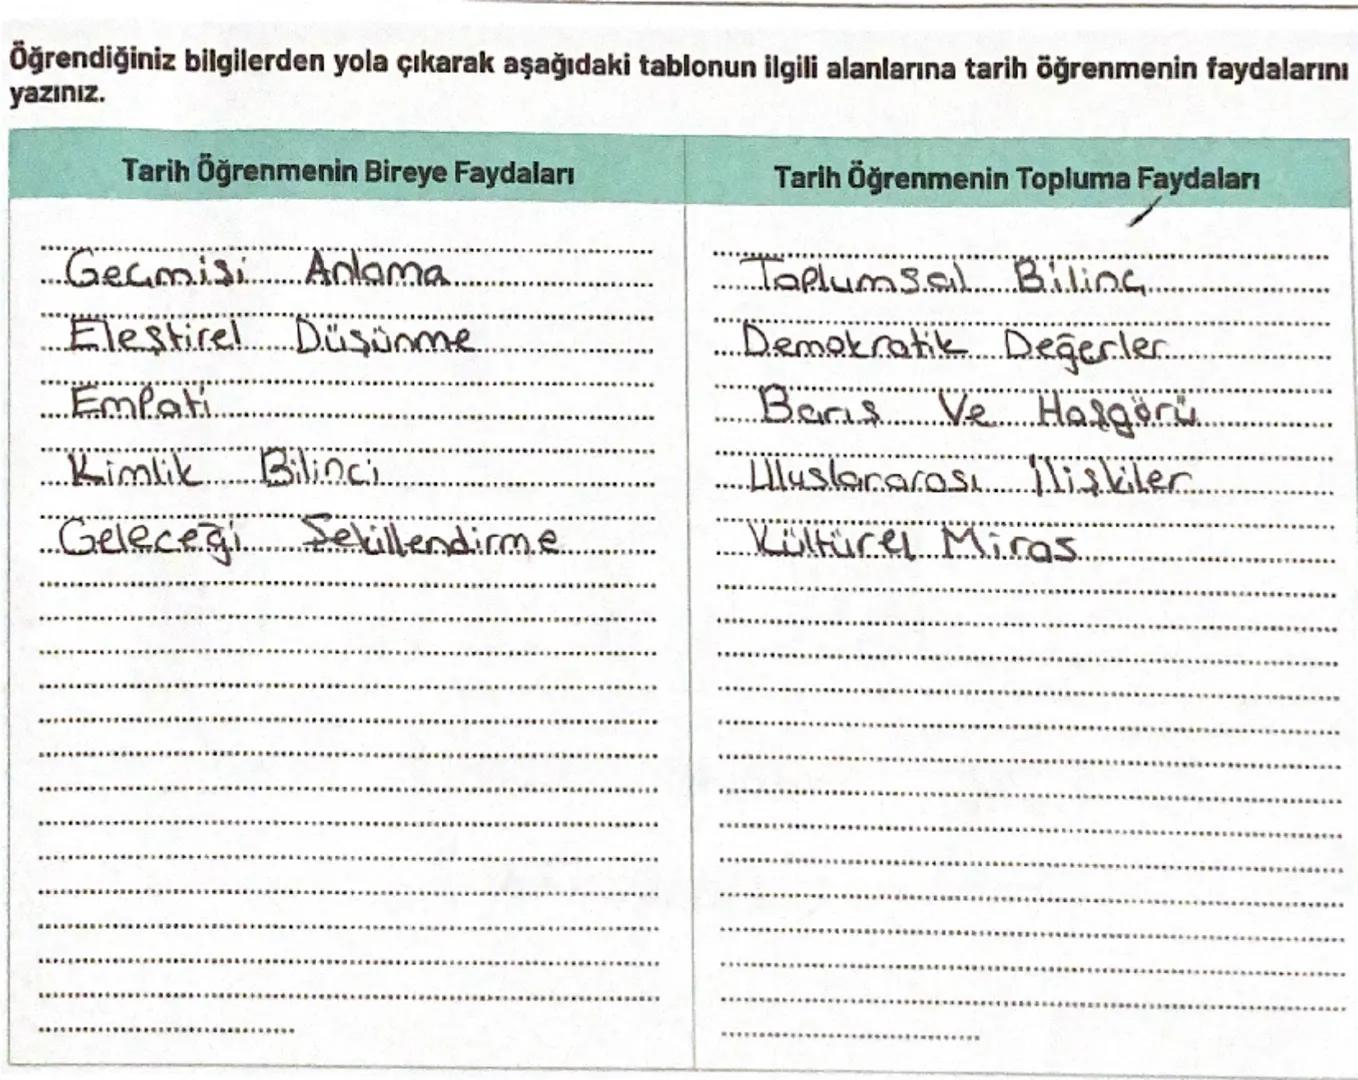 Öğrendiğiniz bilgilerden yola çıkarak aşağıdaki tablonun ilgili alanlarına tarih öğrenmenin faydalarını
yazınız.
Tarih Öğrenmenin Bireye Faydaları
Geçmişi Anlama
Eleştirel Düşünme
Empati
Kimlik Bilinci
Geleceği Şekillendirme
Tarih Öğrenmenin Topluma Faydaları
Toplumsal Bilinç
Demokratik Değerler
Barış Ve Hoşgörü
Uluslararası İlişkiler
Kültürel Miras